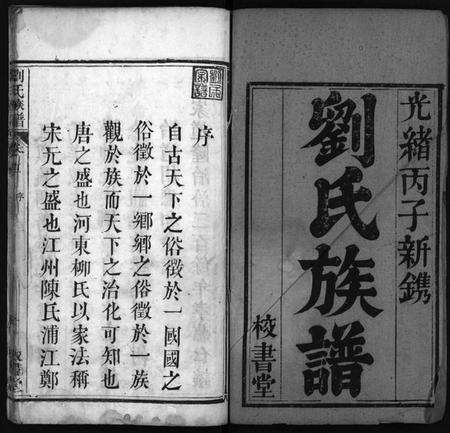 光緒丙子新鐫
劉氏族譜
校書堂
序
自古天下之俗徵於一國國之
俗徵於一鄉鄉之俗徵於一族
觀於族而天下之治化可知也
唐之盛也河東柳氏以家法稱
宋元之盛也江州陳氏浦江鄭
劉氏族譜
序
校書堂